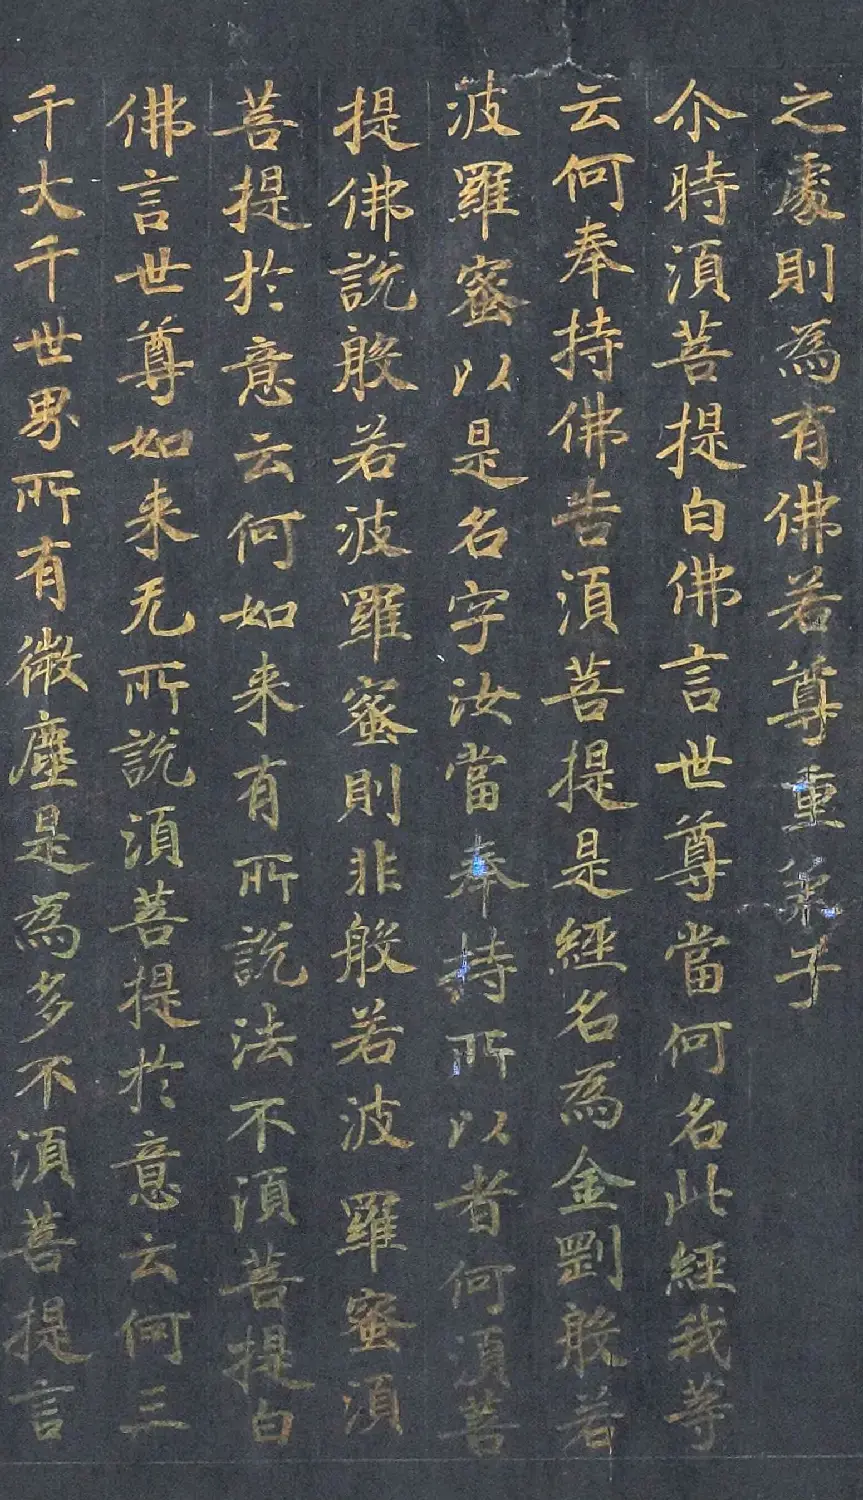 之處則為有佛若尊重弟子
尒時湏菩提白佛言世尊當何名此經我等
云何奉持佛告湏菩提是經名為金剛般若
波羅蜜以是名字汝當奉持所以者何湏菩
提佛說般若波羅蜜則非般若波羅蜜湏
菩提於意云何如来有所說法不湏菩提白
佛言世尊如来无所說湏菩提於意云何三
千大千世界所有微塵是為多不湏菩提言